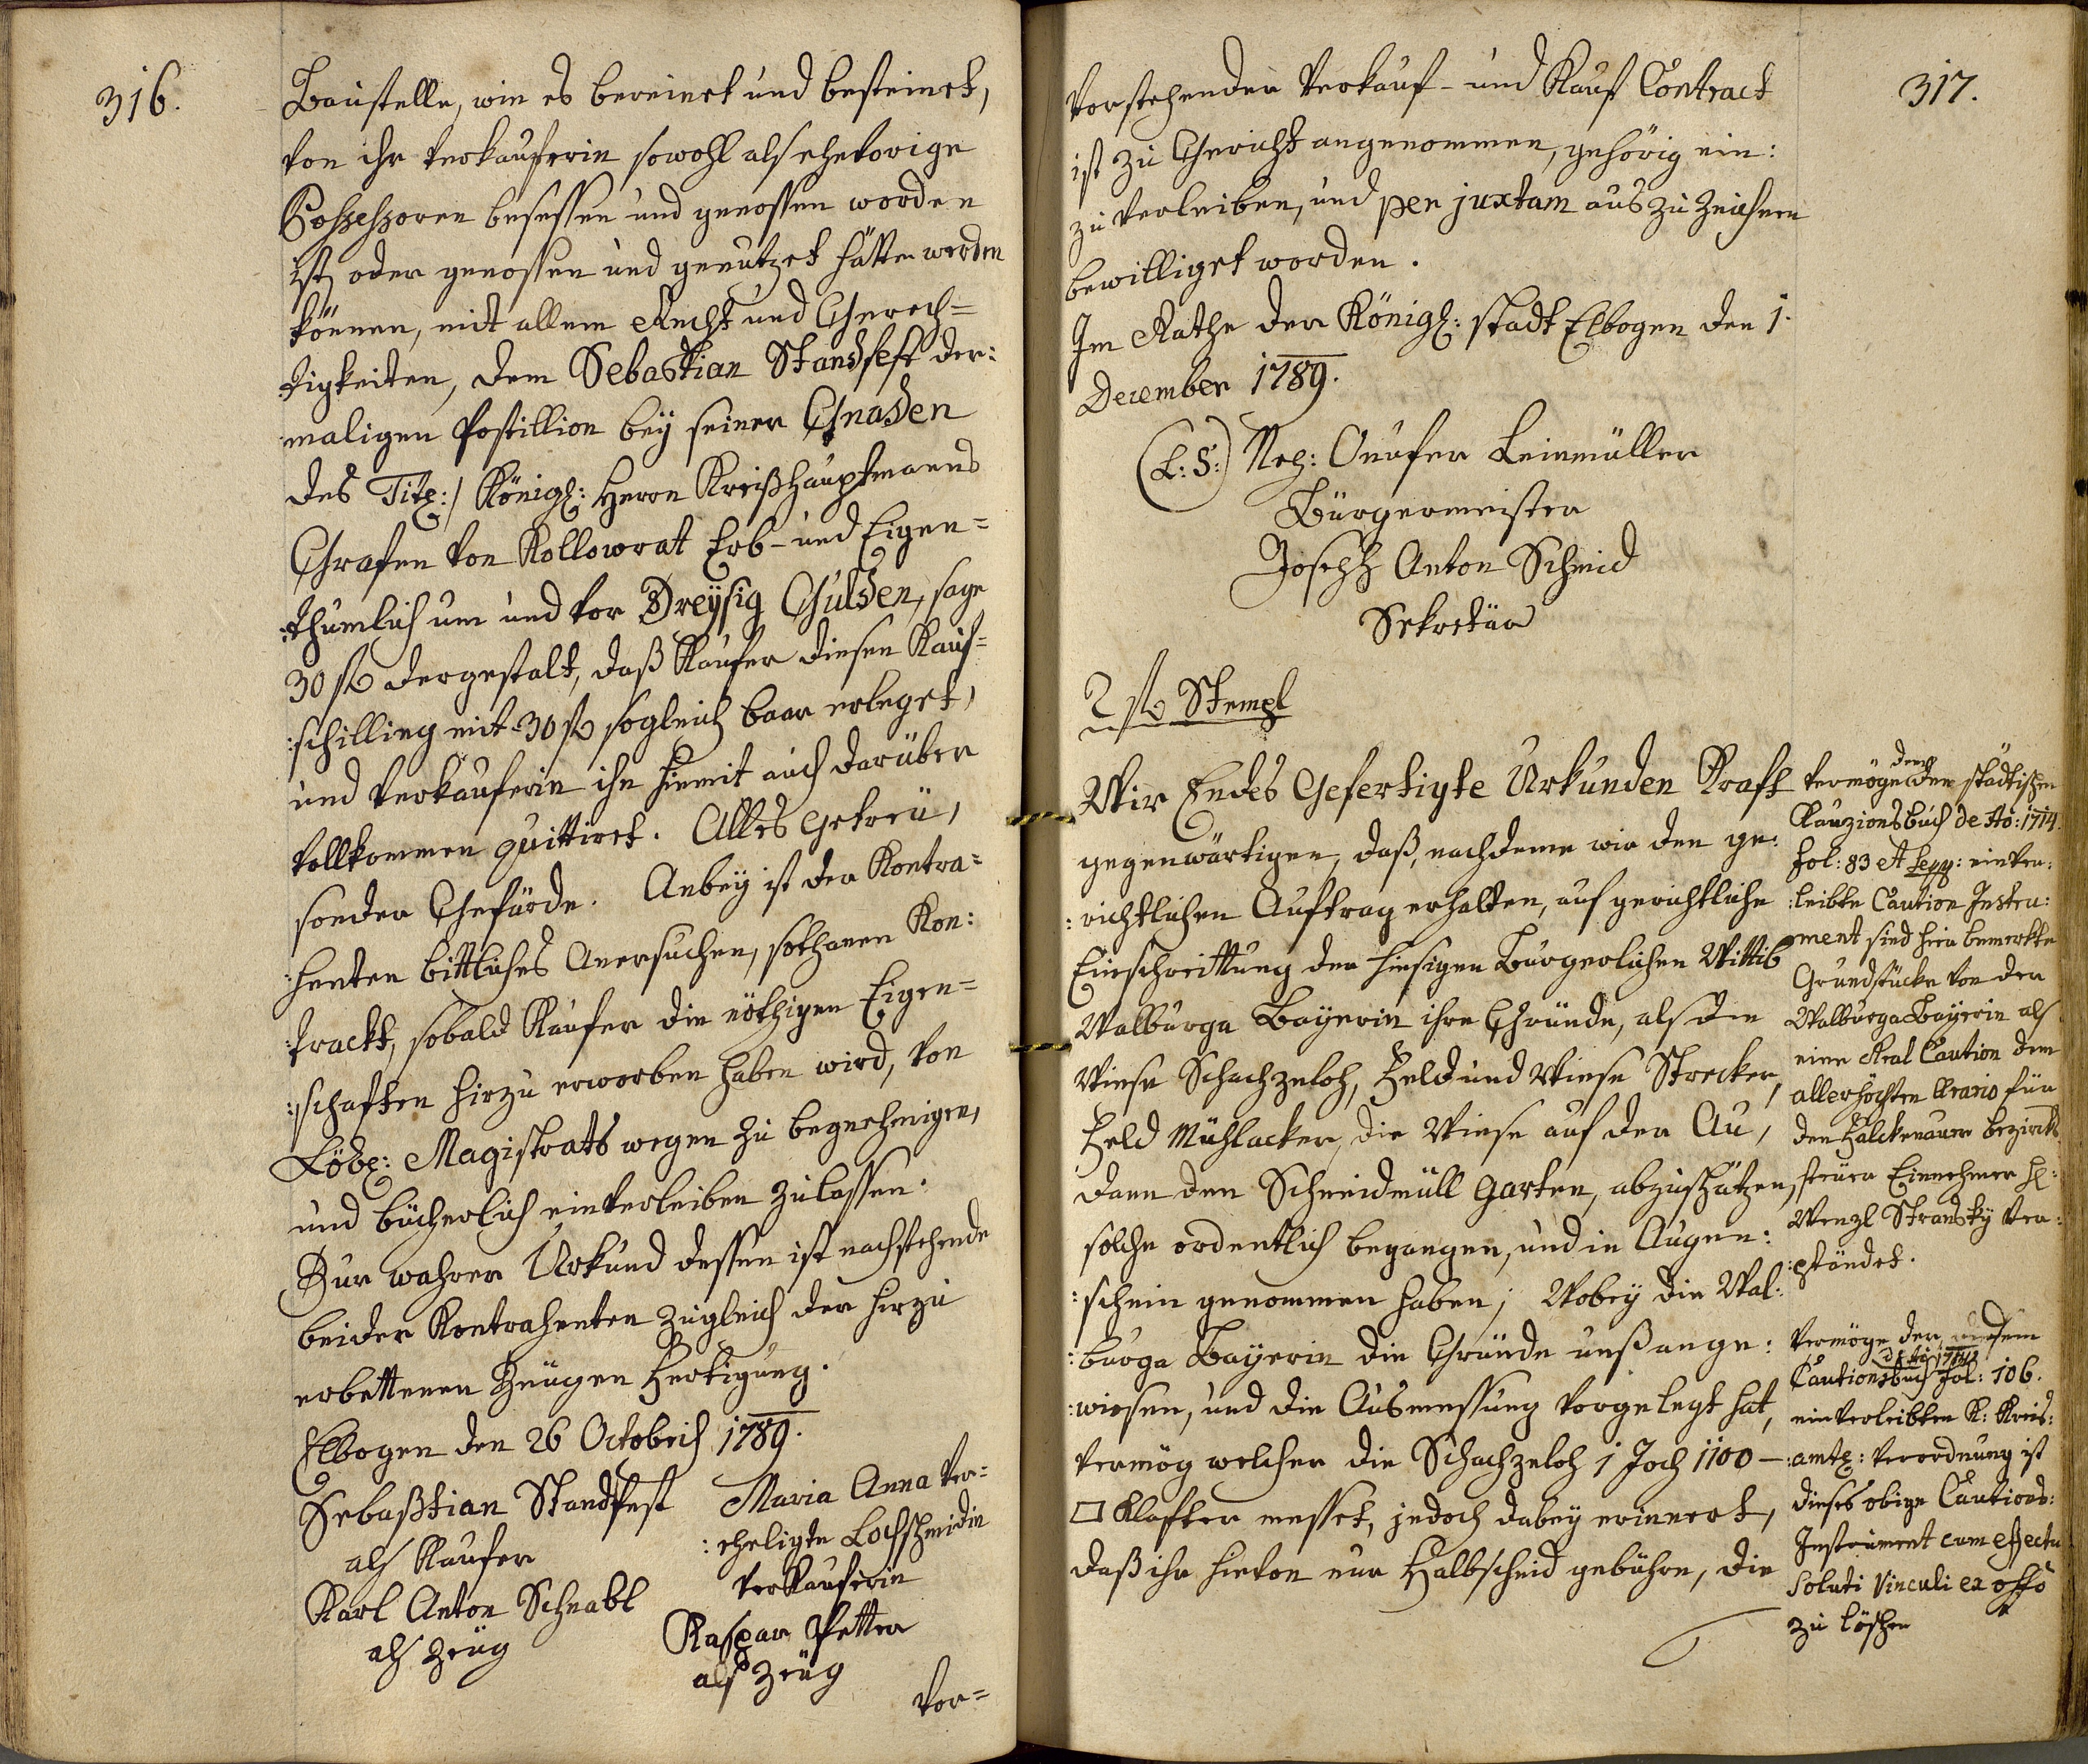 316.
Baustelle, wie es bereinet und besteinet,
von ihr Verkauferin sowohl als ehevorige
Possessoren besessen und genossen worden
ist, oder genossen und genutzet hätte werden
können, mit allem Recht und Gerech=
tigkeiten, dem Sebastian Standfest der:
maligen Postillion bey seiner Gnaden
des Titl:/ Königl: Herrn Kreißhauptmanns
Grafen von Kollowrat Erb- und Eigen=
:thumlich um und vor Dreÿsig Gulden, sage
30 f dergestalt, daß Kaufer diesen Kauf=
:schilling mit 30 f sogleich baar erleget,
und Verkauferin ihn hiemit auch darüber
vollkommen quittiret. Alles getreü,
sonder Gefärde. Anbey ist der Kontra=
:henten bittliches Anersuchen, sothanen Kon:
:trackt, sobald Kaufer die nöthigen Eigen=
:schaften hirzu erworben haben wird, von
Löbl: Magistrats wegen zu begnehmigen,
und bücherlich einverleiben zu lassen.
Zur wahrer Urkund dessen ist nachstehende
beider Kontrahenten zugleich der hirzu
erbettenen Zeugen Fertigung.
Elbogen den 26 Octobris 1789.
Sebastian Standfest
als Kaufer
Karl Anton Schnabl
als Zeüg
Maria Anna Ver=
:eheligte Lochschmidin
Verkauferin
Kaspar Petter
als Zeüg
Vor=
317.
Vorstehender Verkauf- und Kauf Contract
ist zu Gericht angenommen, gehörig ein:
zu verleiben, und per juxtam aus zu zeichnen
bewilliget worden.
Im Rathe der Königl: stadt Elbogen den 1.
December 1789.
(L: S:) Onufer Leinmüller
Bürgermeister
Joseph Anton Schmid
Sekretär
2 f Stempl
Wir Endes Gefertigte Urkunden Kraft
gegenwärtigen, daß, nachdeme wir den ge:
:richtlichen Auftrag erhalten, auf gerichtliche
Einschreittung der hiesigen Bürgerlichen Wittib
Walburga Baÿerin ihre Gründe, als die
Wiese Schachzeloh, Feld und Wiese Strecker,
Feld Mühlacker, die Wiese auf der Au,
dann den Schneidmüll Garten, abzuschätzen,
solche ordentlich begangen, und in Augen:
:schein genommen haben; Wobey die Wal:
:burga Baÿerin die Gründe unß ange:
:wiesen, und die Ausmessung vorgelegt hat,
Vermög welcher die Schachzeloh 1 Joch 1100 –
□ Klafter messet, jedoch dabey erinnert,
daß ihr hievon nur Halbscheid gebühre, die
Vermöge dem städtischen
Kauzionsbuch de Ao: 1714.
fol: 83 et seqq: einver:
:leibte Caution Instru:
ment sind hier bemerkte
Grundstücke von der
Walburga Baÿerin als
eine Real Caution dem
allerhöchsten Erario für
den Falckenauer bezircks
steuer Einnehmer H:
Wenzl Stransky ver:
:pfändet.
Vermöge der diesem
de Ao: 1714
Cautionsbuch fol: 106.
einverleibten K: Kreis:
:amtl: Verordnung ist
dieses obige Cautions:
Instrument cum effectu
soluti Vinculi ex offo
zu löschen